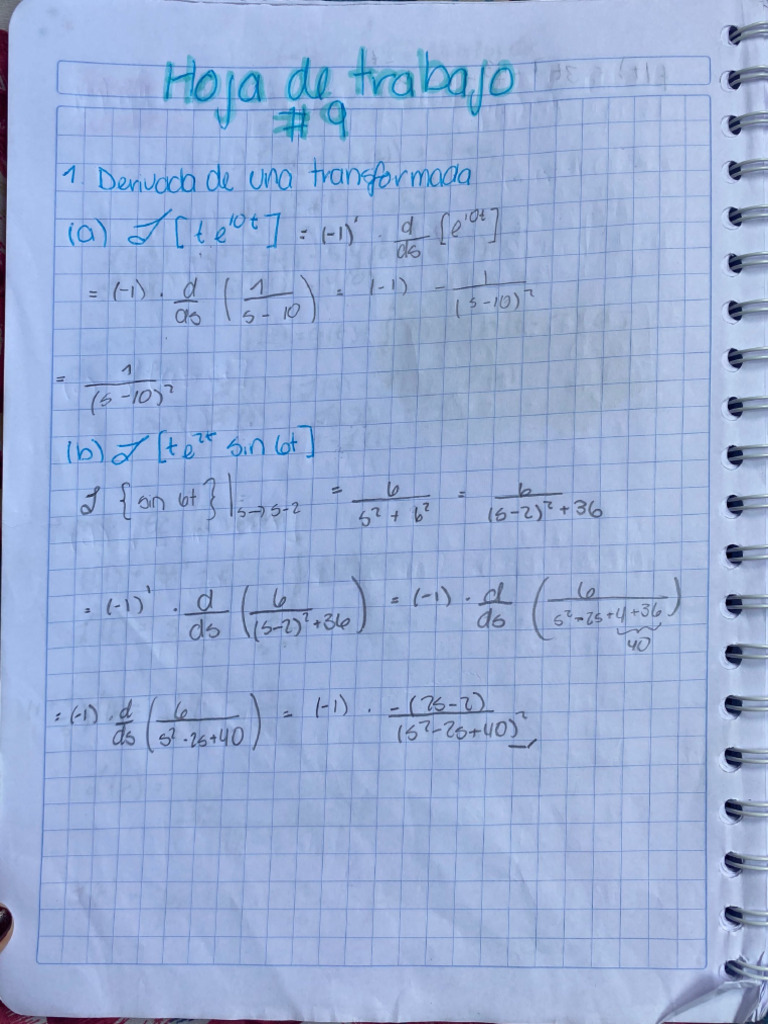 Hoja de trabajo
#9
1. Derivada de una transformada
(a) ℒ [t e^{10t}] = (-1)^1 · d/ds [e^{10t}]
= (-1) · d/ds (1/(s - 10)) = (-1) - 1/(s-10)^2
= 1/(s-10)^2
(b) ℒ [te^{2t} sin 6t]
ℒ {sin 6t}|_{s→s-2} = 6/(s^2 + 6^2) = 6/((s-2)^2+36)
= (-1)^1 · d/ds (6/((s-2)^2+36)) = (-1) · d/ds (6/(s^2-2s+4+36))
40
= (-1) · d/ds (6/(s^2-2s+40)) = (-1) · -(2s-2)/(s^2-2s+40)^2